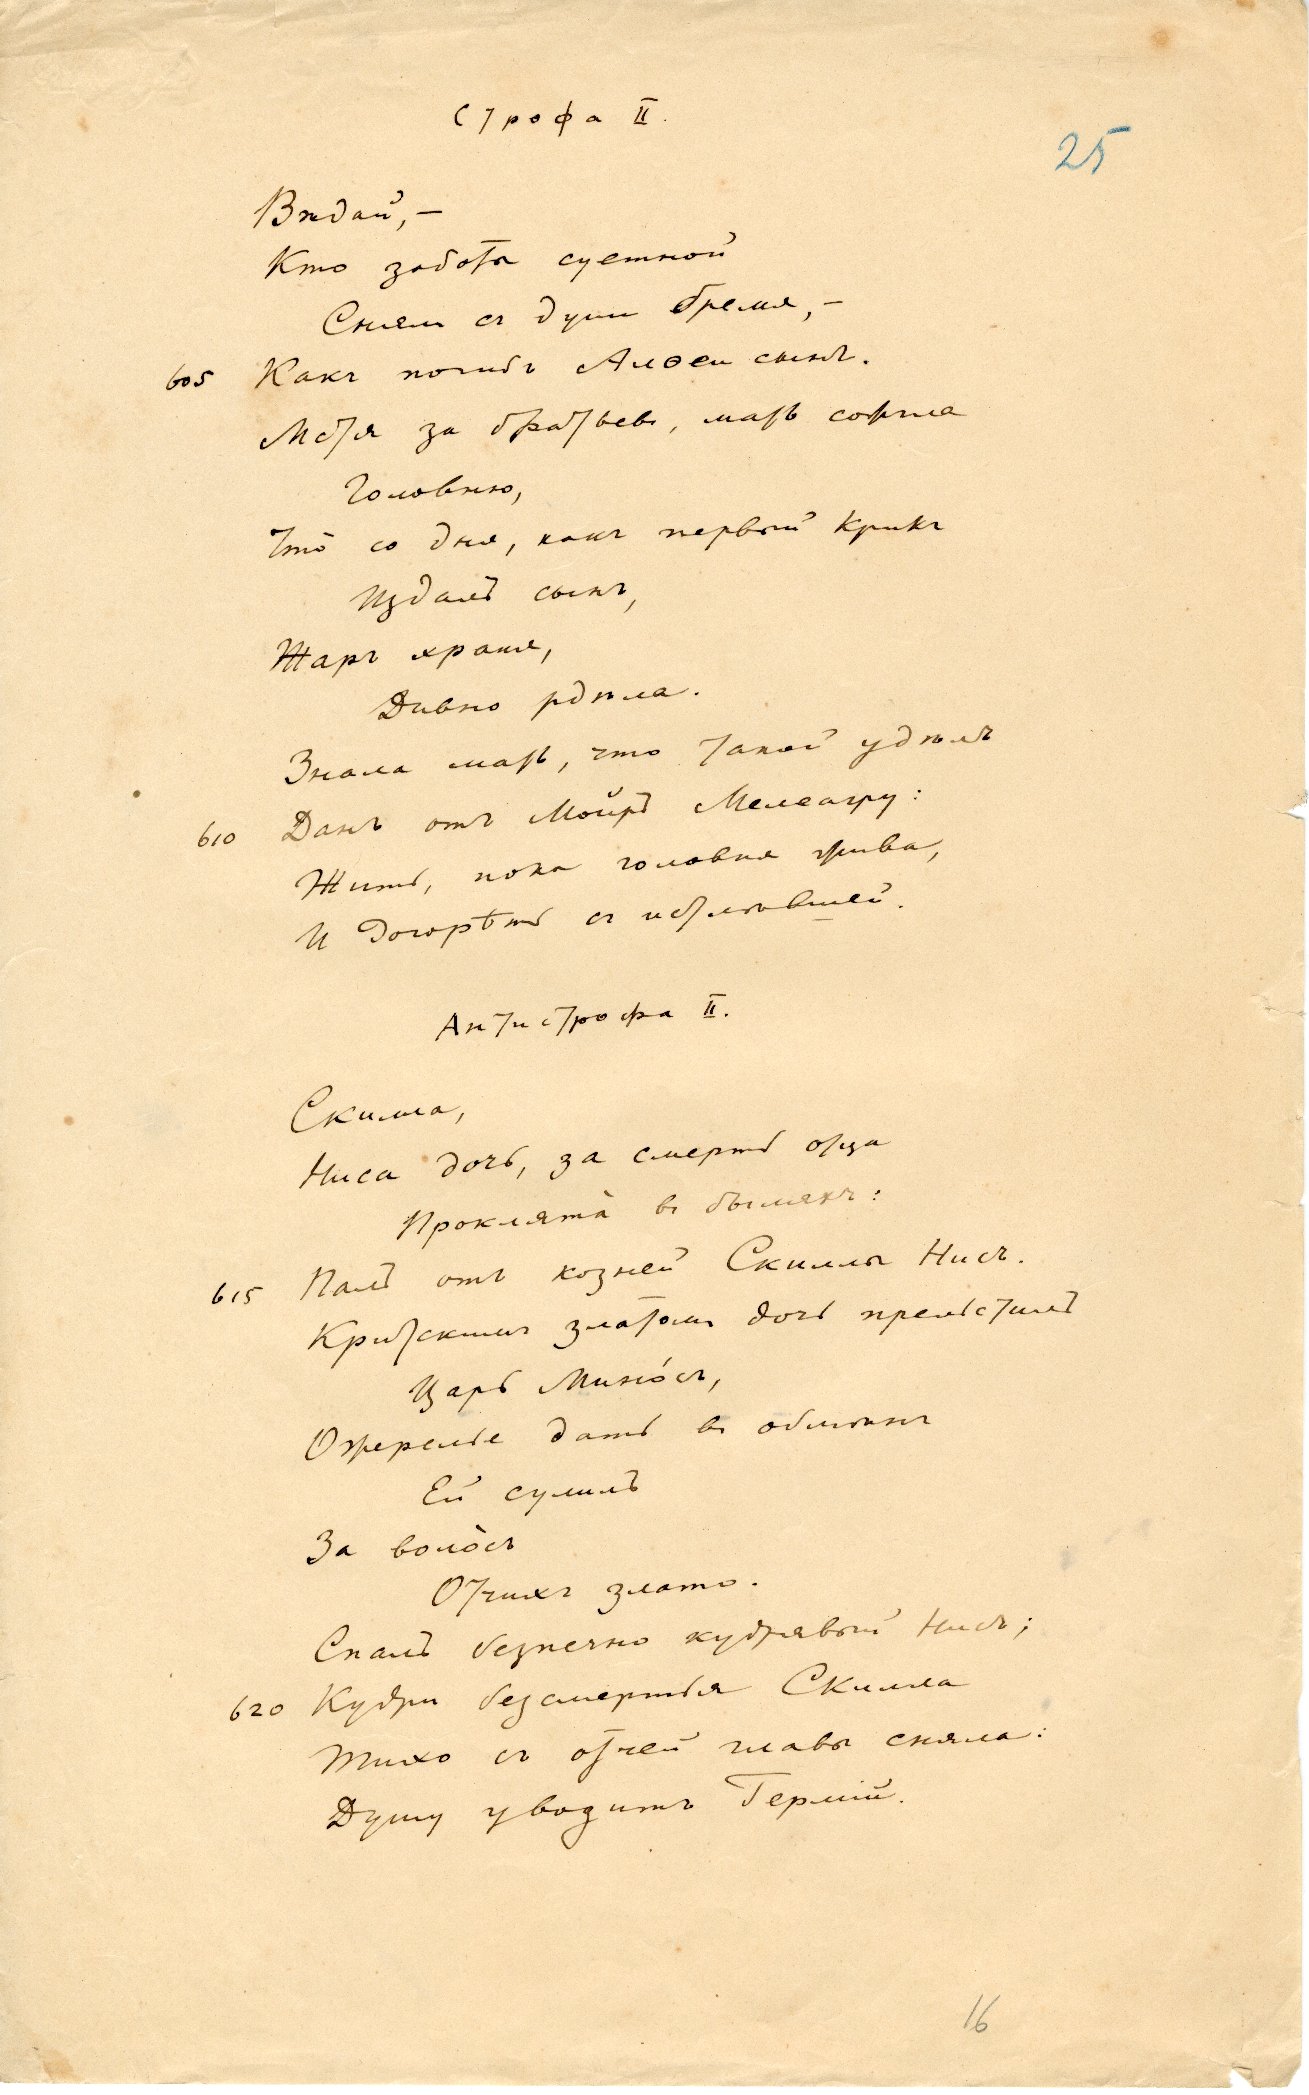 Строфа II.
25
Вѣдай, —
Кто заботы суетной
Снялъ съ души бремя, —
605 Какъ погибъ Алѳеи сынъ.
Мстя за братьевъ, мать сожгла
Головню,
Что̀ со дня, какъ первый крикъ
Издалъ сынъ,
Жаръ храня,
Дивно рдѣла.
Знала мать, что такой удѣлъ
610 Данъ отъ Мойръ Мелеагру:
Жить, пока головня жива,
И догорѣть съ истлѣвшей.
Антистрофа II.
Скилла,
Ниса дочь, за смерть отца
Проклята̀ въ быляхъ:
615 Палъ отъ козней Скиллы Нисъ.
Критскимъ златомъ дочь прельстилъ
Царь Мино́съ,
Ожерелье дать въ обмѣнъ
Ей сулилъ
За воло̀съ
Отчихъ злато.
Спалъ безпечно кудрявый Нисъ;
620 Кудри безсмертья Скилла
Тихо съ отчей главы сняла:
Душу уводитъ Гермій.
16